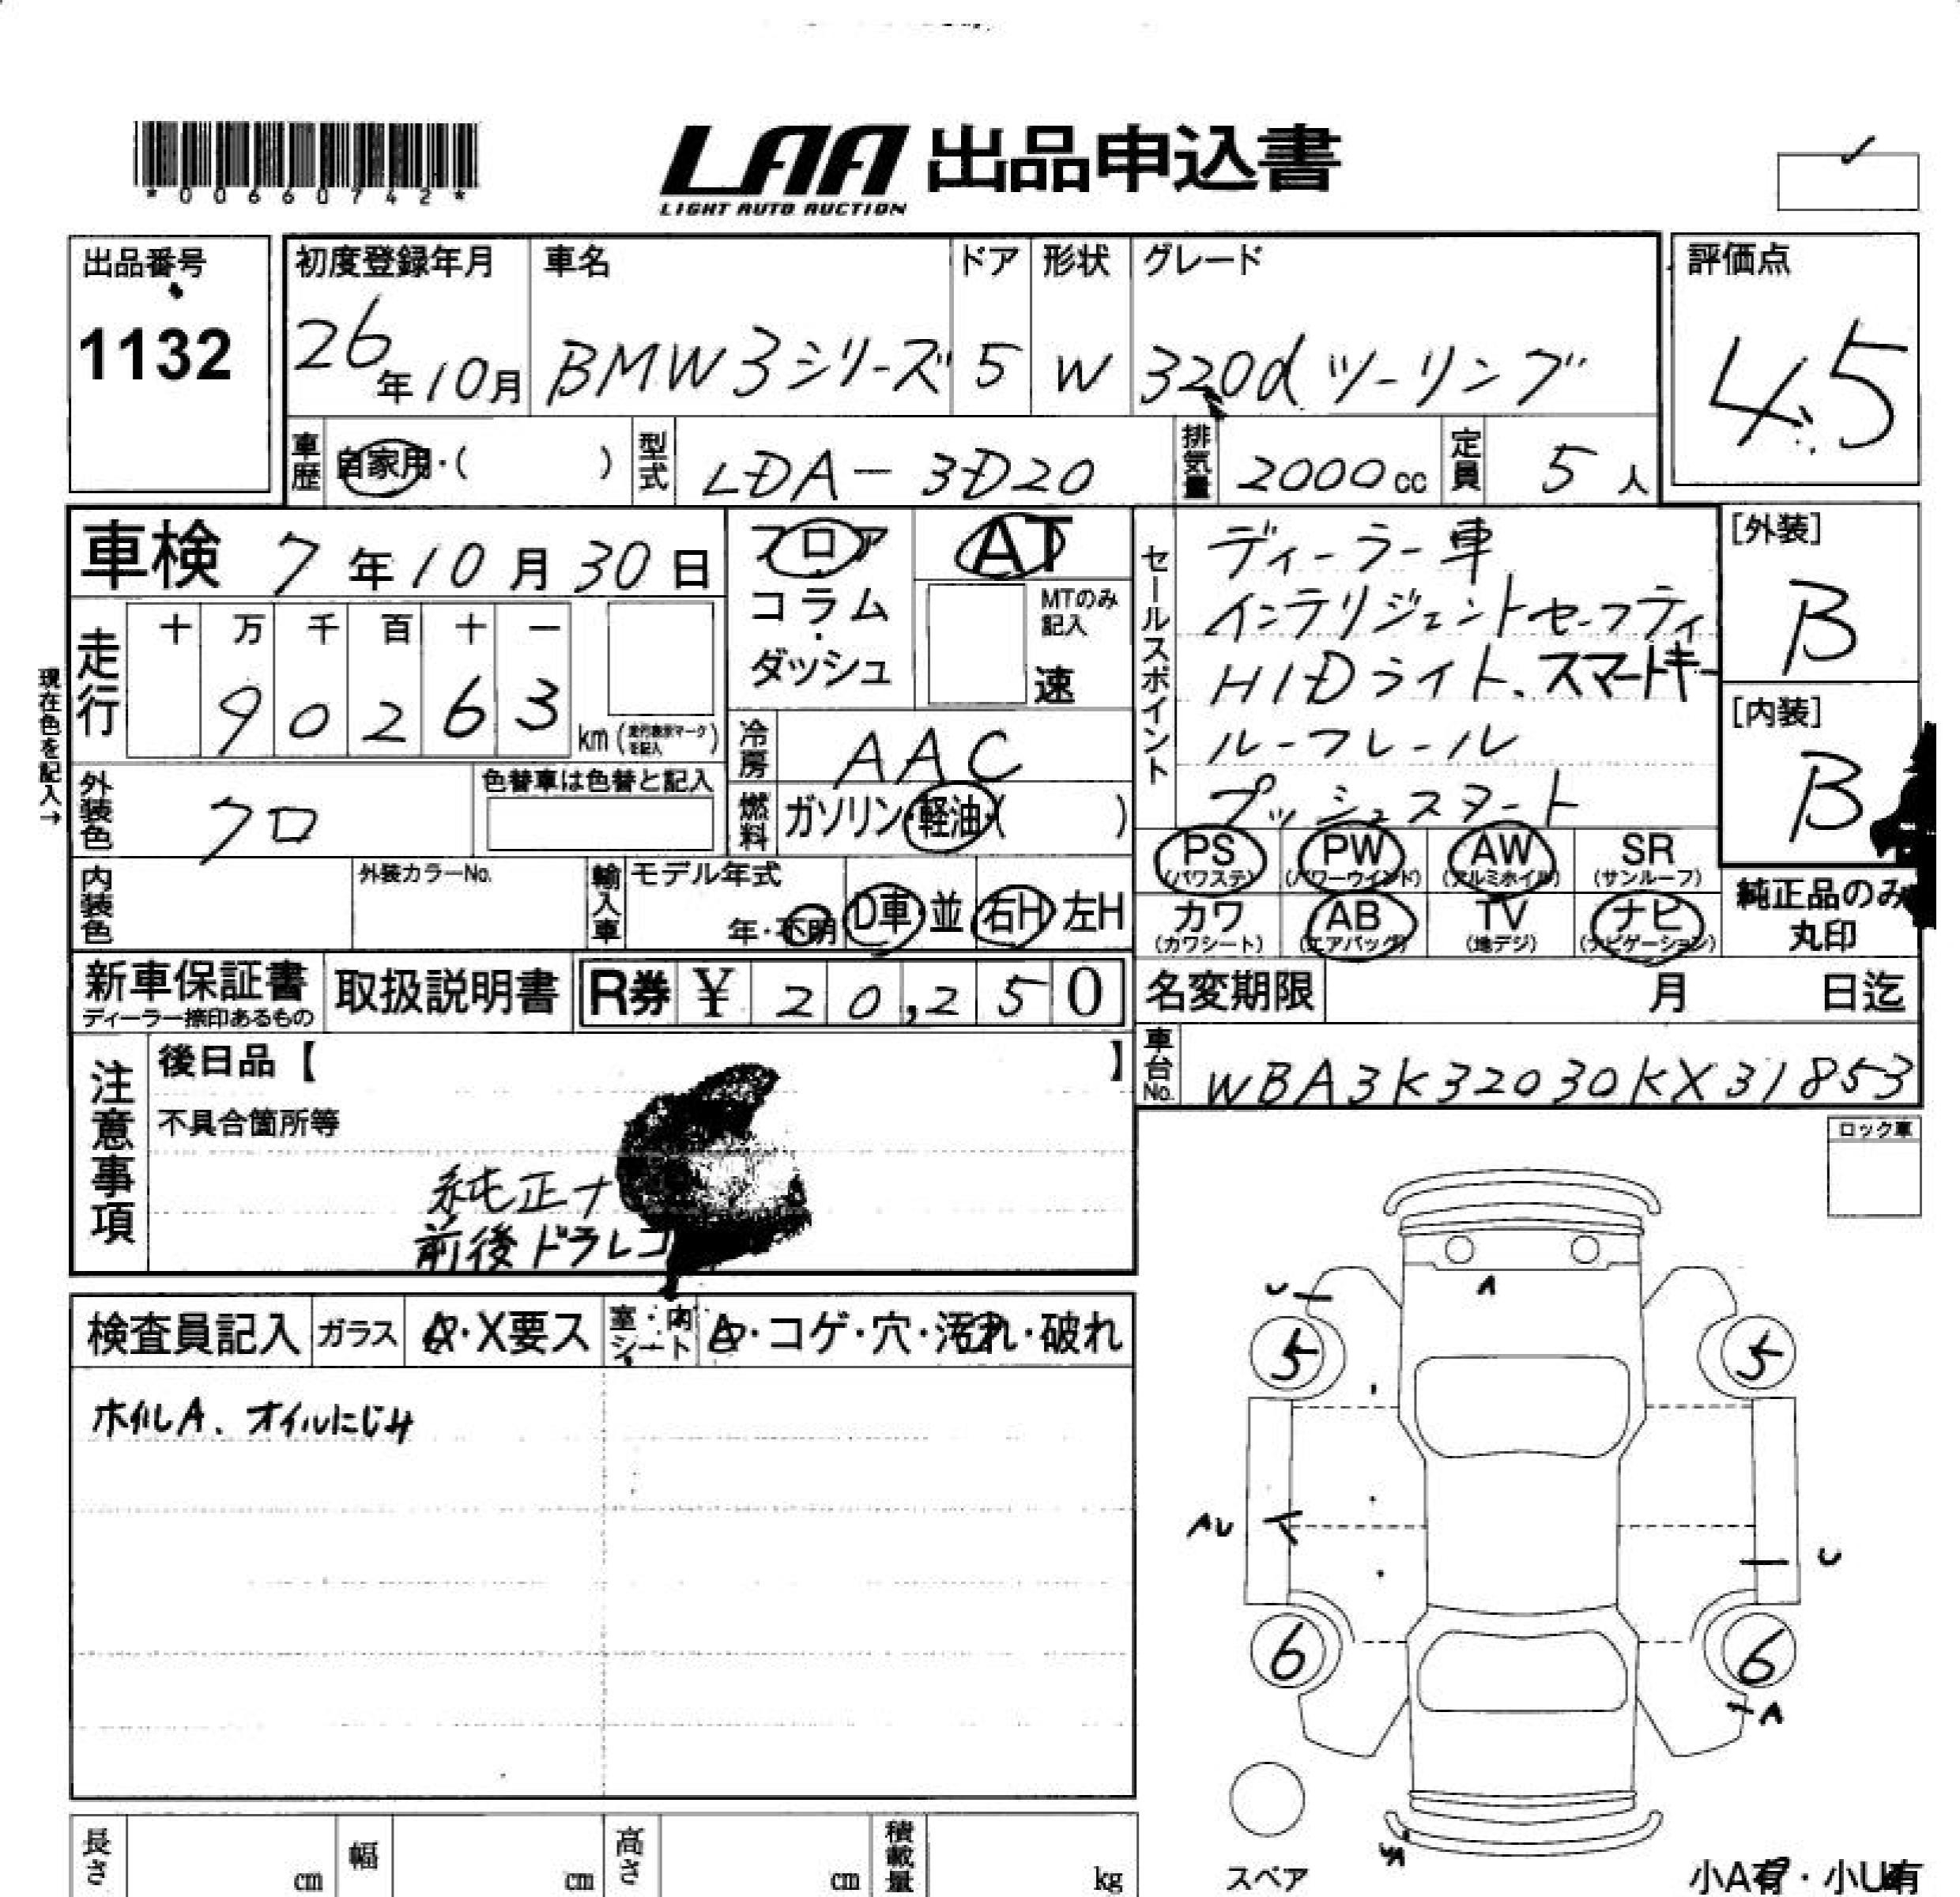 *00660742*
LAA 出品申込書
LIGHT AUTO AUCTION
出品番号
1132
初度登録年月
26年10月
車名
BMW3シリーズ
ドア
5
形状
W
グレード
320d ツーリング
評価点
4.5
車歴
自家用・( )
型式
LDA-3D20
排気量
2000cc
定員
5人
車検 7年10月30日
フロア
コラム
・
ダッシュ
AT
MTのみ
記入
速
セールスポイント
ディーラー車
インテリジェントセーフティ
HIDライト、スマートキー
ルーフレール
プッシュスタート
[外装]
B
[内装]
B
現在色を記入→
走行
十 万 千 百 十 一
9 0 2 6 3
km
冷房
AAC
外装色
クロ
色替車は色替と記入
燃料
ガソリン・軽油・( )
PS
(パワステ)
PW
(パワーウインド)
AW
(アルミホイル)
SR
(サンルーフ)
カワ
(カワシート)
AB
(エアバッグ)
TV
(地デジ)
ナビ
(ナビゲーション)
純正品のみ
丸印
内装色
外装カラーNo.
輸入車
モデル年式
年・不明
D車・並
右H・左H
新車保証書
ディーラー捺印あるもの
取扱説明書
R券 ¥ 20,250
名変期限 月 日迄
車台No.
WBA3K32030KX31853
注意事項
後日品【 】
不具合箇所等
純正ナ
前後ドラレコ
ロック車
検査員記入
ガラス
A・X要ス
室・内
シート
A・コゲ・穴・汚れ・破れ
ホイルA、オイルにじみ
U
A
5
5
AU
U
6
6
A
スペア
小A有・小U有
長さ cm
幅 cm
高さ cm
積載量 kg